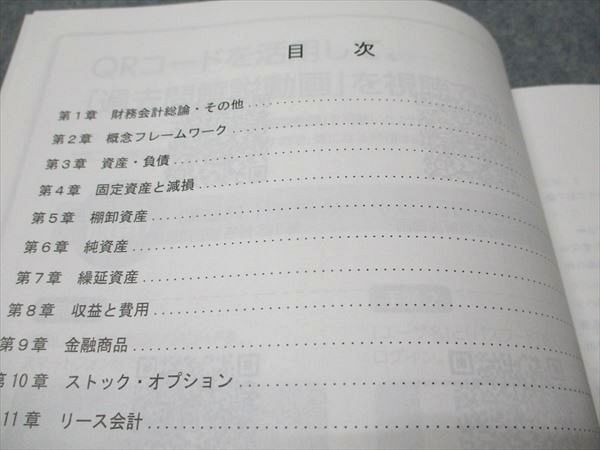 目 次
第1章 財務会計総論・その他
第2章 概念フレームワーク
第3章 資産・負債
第4章 固定資産と減損
第5章 棚卸資産
第6章 純資産
第7章 繰延資産
第8章 収益と費用
第9章 金融商品
第10章 ストック・オプション
11章 リース会計